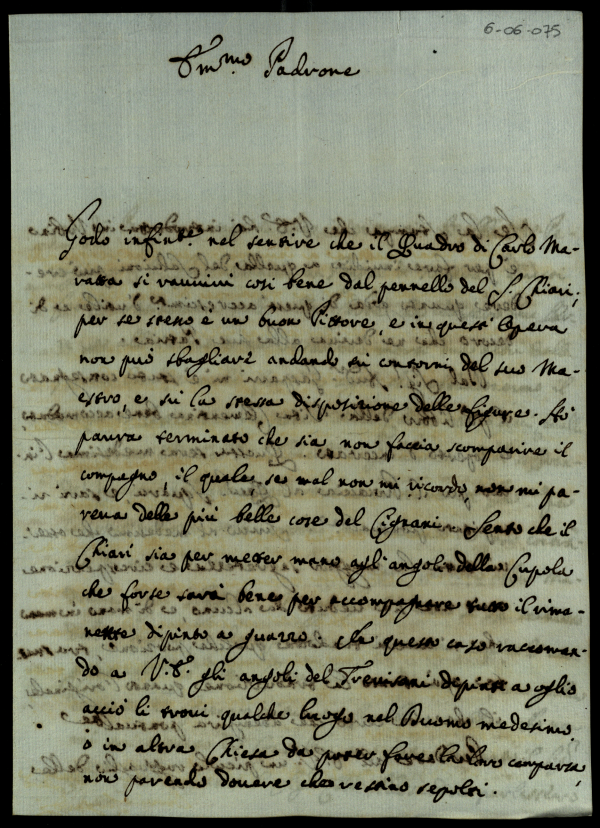 6-06-075
Em.mo Padrone
Godo infinit.e nel sentire che il Quadro di Carlo Ma-
ratta si ravvivi così bene dal pennello del S. Chiari;
per se stesso è un buon Pittore, e in quest'Opera
non può sbagliare andando sù contorni del suo Ma-
estro, e sù la stessa disposizione delle figure. Hò
paura terminato che sia non faccia scomparire il
compagno, il quale se mal non mi ricordo non mi pa-
reva delle più belle cose del Cignani. Sento che il
Chiari sia per metter mano agl'angoli della Cupola
che forse sarà bene per accompagnare tutto il rima-
nente dipinto a guazzo. In questo caso raccoman-
do a V.E. gli angoli del Trevisani depinti a oglio
acciò li trovi qualche luogo nel Duomo medesimo,
ò in altra Chiesa da poter fare la loro comparsa,
non parendo dovere che restino sepolti.